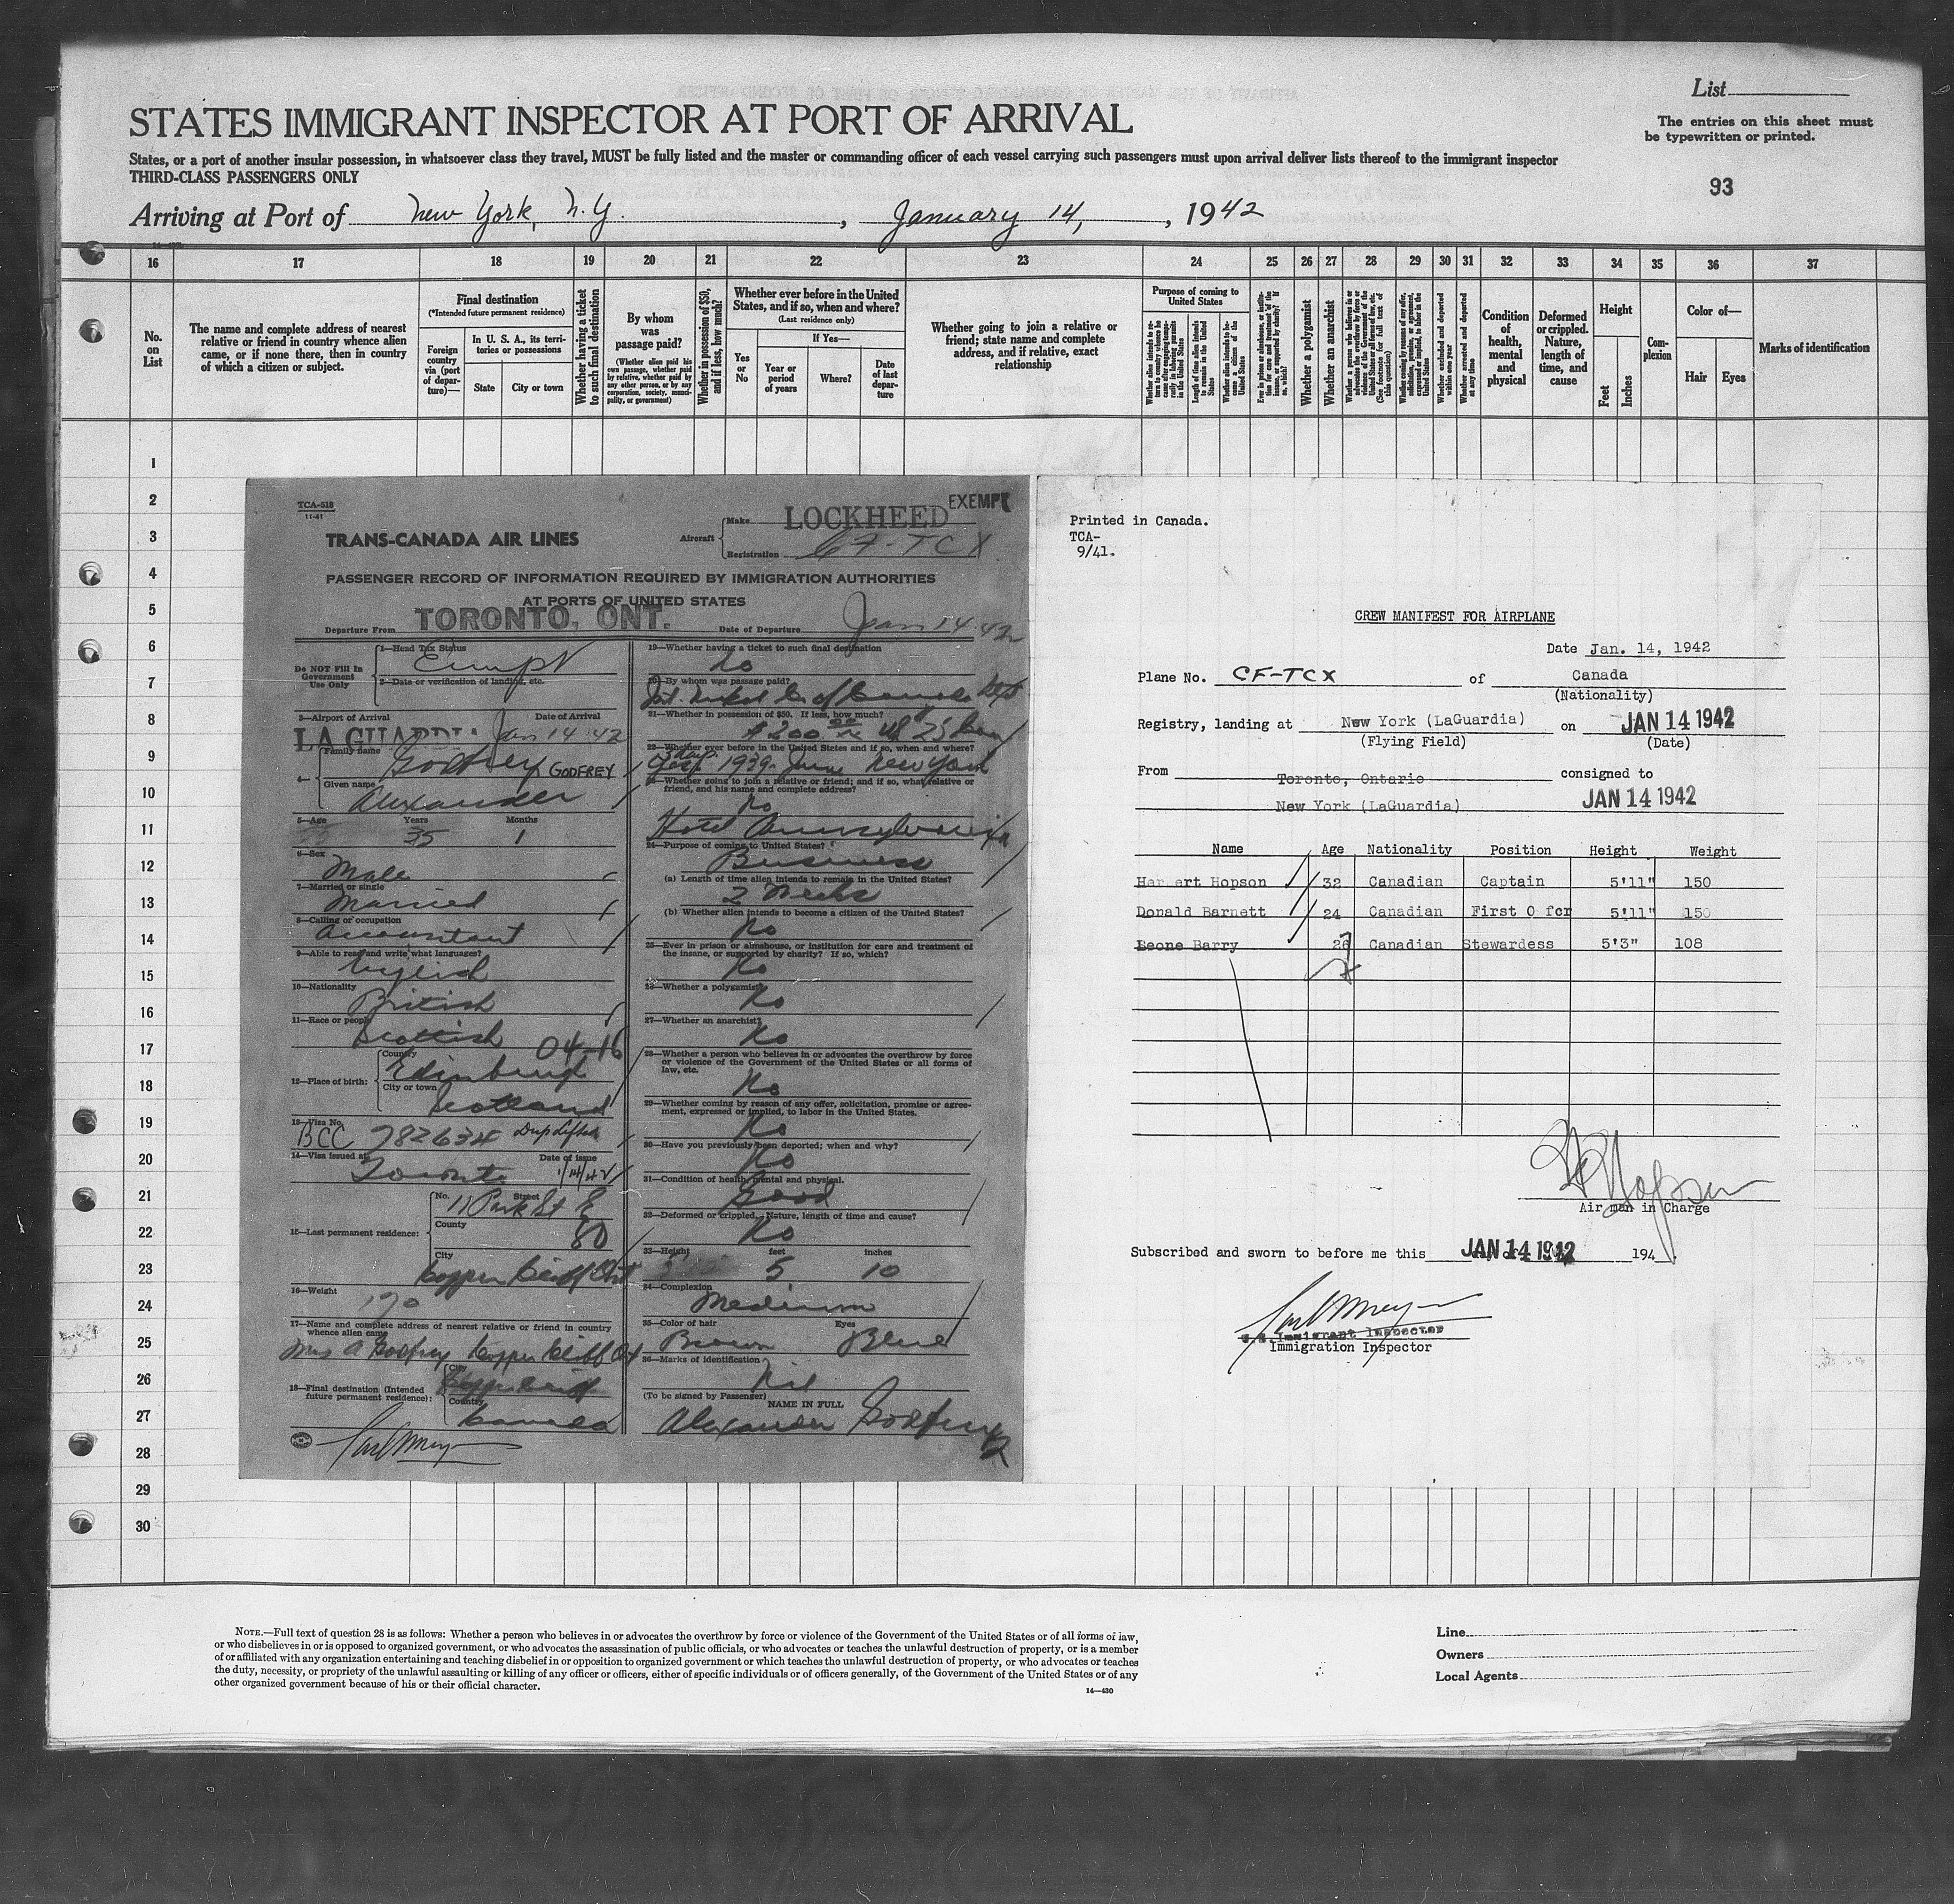 List
STATES IMMIGRANT INSPECTOR AT PORT OF ARRIVAL
The entries on this sheet must
be typewritten or printed.
States, or a port of another insular possession, in whatsoever class they travel, MUST be fully listed and the master or commanding officer of each vessel carrying such passengers must upon arrival deliver lists thereof to the immigrant inspector
THIRD-CLASS PASSENGERS ONLY
93
Arriving at Port of New York, N.Y., January 14, 1942
16 17 18 19 20 21 22 23 24 25 26 27 28 29 30 31 32 33 34 35 36 37
No. on List
The name and complete address of nearest
relative or friend in country whence alien
came, or if none there, then in country
of which a citizen or subject.
Final destination
(*Intended future permanent residence)
Foreign country via (port of departure)—
In U. S. A., its territories or possessions
State
City or town
Whether having a ticket to such final destination
By whom was passage paid?
(Whether alien paid his own passage, whether paid by relative, whether paid by any other person, or by any corporation, society, municipality, or government)
Whether in possession of $50, and if less, how much?
Whether ever before in the United States, and if so, when and where?
(Last residence only)
Yes or No
If Yes—
Year or period of years
Where?
Date of last departure
Whether going to join a relative or
friend; state name and complete
address, and if relative, exact
relationship
Purpose of coming to United States
Whether a polygamist
Whether an anarchist
Condition of health, mental and physical
Deformed or crippled. Nature, length of time, and cause
Height
Feet
Inches
Complexion
Color of—
Hair
Eyes
Marks of identification
1
2
3
4
5
6
7
8
9
10
11
12
13
14
15
16
17
18
19
20
21
22
23
24
25
26
27
28
29
30
TCA-518
11-41
EXEMPT
TRANS-CANADA AIR LINES
Aircraft
Make LOCKHEED
Registration CF-TCX
PASSENGER RECORD OF INFORMATION REQUIRED BY IMMIGRATION AUTHORITIES
AT PORTS OF UNITED STATES
Departure From TORONTO, ONT.
Date of Departure Jan 14-42
Do NOT Fill In
Government
Use Only
1—Head Tax Status
Exempt
2—Date or verification of landing, etc.
3—Airport of Arrival
Date of Arrival
LA GUARDIA Jan 14-42
4—
Family name
Godfrey GODFREY
Given name
Alexander
5—Age Years Months
35 1
6—Sex
Male
7—Married or single
Married
8—Calling or occupation
Accountant
9—Able to read and write what languages?
English
10—Nationality
British
11—Race or people
Scottish 04-16
12—Place of birth:
Country
Edinburgh
City or town
Scotland
13—Visa No.
BCC 782634 Dup Lifted
14—Visa issued at
Date of issue
Toronto 1/14/42
15—Last permanent residence:
No. Street
11 Park St E
County
80
City
Copper Cliff Ont
16—Weight
170
17—Name and complete address of nearest relative or friend in country
whence alien came
Mrs A Godfrey Copper Cliff Ont
18—Final destination (Intended
future permanent residence):
City
Copper Cliff
Country
Canada
19—Whether having a ticket to such final destination
No
20—By whom was passage paid?
Int. Nickel Co of Canada
21—Whether in possession of $50. If less, how much?
$200.00
22—Whether ever before in the United States and if so, when and where?
1939 June New York
23—Whether going to join a relative or friend; and if so, what relative or
friend, and his name and complete address?
No
Hotel Pennsylvania
24—Purpose of coming to United States?
Business
(a) Length of time alien intends to remain in the United States?
2 Weeks
(b) Whether alien intends to become a citizen of the United States?
No
25—Ever in prison or almshouse, or institution for care and treatment of
the insane, or supported by charity? If so, which?
No
26—Whether a polygamist?
No
27—Whether an anarchist?
No
28—Whether a person who believes in or advocates the overthrow by force
or violence of the Government of the United States or all forms of
law, etc.
No
29—Whether coming by reason of any offer, solicitation, promise or agree-
ment, expressed or implied, to labor in the United States.
No
30—Have you previously been deported; when and why?
No
31—Condition of health, mental and physical.
Good
32—Deformed or crippled. Nature, length of time and cause?
No
33—Height feet inches
5 10
34—Complexion
Medium
35—Color of hair Eyes
Brown Blue
36—Marks of identification
Nil
(To be signed by Passenger)
NAME IN FULL
Alexander Godfrey
2
Printed in Canada.
TCA-
9/41.
CREW MANIFEST FOR AIRPLANE
Date Jan. 14, 1942
Plane No. CF-TCX of Canada
(Nationality)
Registry, landing at New York (LaGuardia) on JAN 14 1942
(Flying Field) (Date)
From Toronto, Ontario consigned to
New York (LaGuardia) JAN 14 1942
Name Age Nationality Position Height Weight
Herbert Hopson 32 Canadian Captain 5'11" 150
Donald Barnett 24 Canadian First O fcr 5'11" 150
Leone Barry 26 Canadian Stewardess 5'3" 108
Air man in Charge
Subscribed and sworn to before me this JAN 14 1942 194
U.S. Immigrant Inspector
Immigration Inspector
NOTE.—Full text of question 28 is as follows: Whether a person who believes in or advocates the overthrow by force or violence of the Government of the United States or of all forms of law,
or who disbelieves in or is opposed to organized government, or who advocates the assassination of public officials, or who advocates or teaches the unlawful destruction of property, or is a member
of or affiliated with any organization entertaining and teaching disbelief in or opposition to organized government or which teaches the unlawful destruction of property, or who advocates or teaches
the duty, necessity, or propriety of the unlawful assaulting or killing of any officer or officers, either of specific individuals or of officers generally, of the Government of the United States or of any
other organized government because of his or their official character.
14—430
Line
Owners
Local Agents